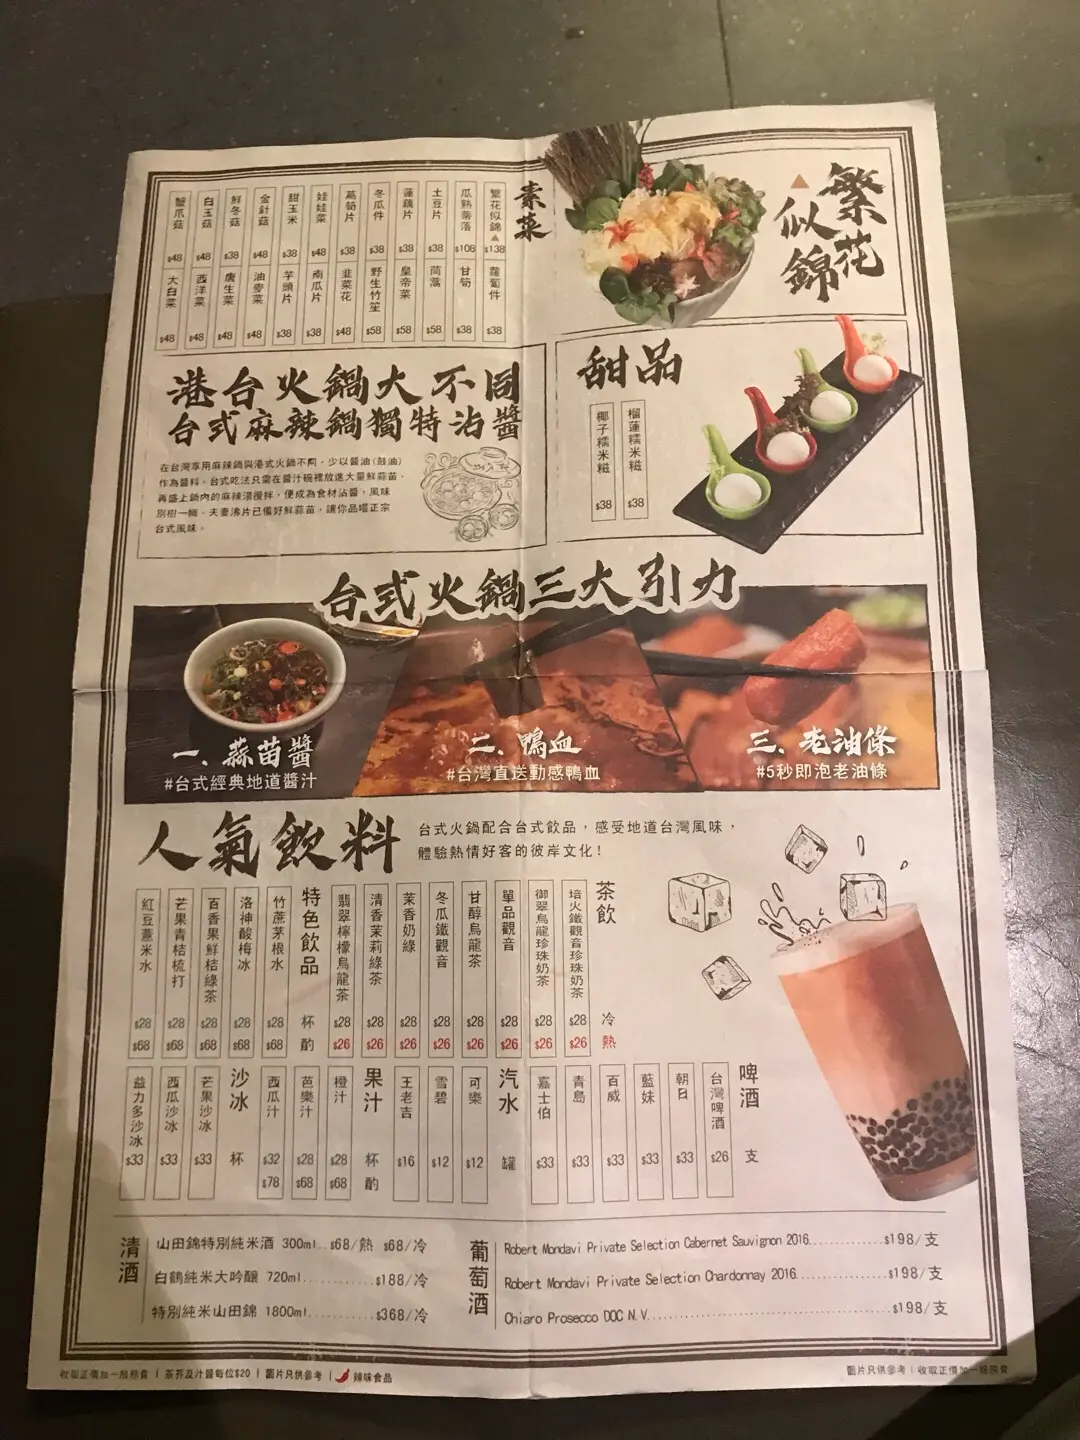 繁花似錦
素菜
繁花似錦 $138
瓜熟蒂落 $108
土豆片 $38
蓮藕片 $38
冬瓜件 $38
萵筍片 $38
娃娃菜 $48
甜玉米 $38
金針菇 $48
鮮冬菇 $48
白玉菇 $48
蟹爪菇 $48
蘿蔔件 $38
甘筍 $38
茼蒿 $58
皇帝菜 $58
野生竹笙 $58
韭菜花 $48
南瓜片 $38
芋頭片 $38
油麥菜 $48
唐生菜 $48
西洋菜 $48
大白菜 $48
港台火鍋大不同
台式麻辣鍋獨特沾醬
在台灣享用麻辣鍋與港式火鍋不同，少以醬油(鼓油)
作為醬料，台式吃法只需在醬汁碗裡放進大量鮮蒜苗，
再盛上鍋內的麻辣湯攪拌，便成為食材沾醬，風味
別樹一幟。夫妻沸片已備好鮮蒜苗，讓你品嚐正宗
台式風味。
甜品
榴蓮糯米糍 $38
椰子糯米糍 $38
台式火鍋三大引力
一、蒜苗醬
#台式經典地道醬汁
二、鴨血
#台灣直送動感鴨血
三、老油條
#5秒即泡老油條
人氣飲料
台式火鍋配合台式飲品，感受地道台灣風味，
體驗熱情好客的彼岸文化！
茶飲 冷 熱
培火鐵觀音珍珠奶茶 $28 $26
御翠烏龍珍珠奶茶 $28 $26
單品觀音 $28 $26
甘醇烏龍茶 $28 $26
冬瓜鐵觀音 $28 $26
茉香奶綠 $28 $26
清香茉莉綠茶 $28 $26
翡翠檸檬烏龍茶 $28 $26
特色飲品 杯 酌
竹蔗茅根水 $28 $68
洛神酸梅冰 $28 $68
百香果鮮桔綠茶 $28 $68
芒果青桔梳打 $28 $68
紅豆薏米水 $28 $68
啤酒 支
台灣啤酒 $26
朝日 $33
藍妹 $33
百威 $33
青島 $33
嘉士伯 $33
汽水 罐
可樂 $12
雪碧 $12
王老吉 $16
果汁 杯 酌
橙汁 $28 $68
芭樂汁 $28 $68
西瓜汁 $32 $78
沙冰 杯
芒果沙冰 $33
西瓜沙冰 $33
益力多沙冰 $33
清酒
山田錦特別純米酒 300ml...$68/熱 $68/冷
白鶴純米大吟釀 720ml...........$188/冷
特別純米山田錦 1800ml...........$368/冷
葡萄酒
Robert Mondavi Private Selection Cabernet Sauvignon 2016...........$198/支
Robert Mondavi Private Selection Chardonnay 2016..............$198/支
Chiaro Prosecco DOC N.V.....................................$198/支
收取正價加一服務費 | 茶芥及汁醬每位$20 | 圖片只供參考 | 辣味食品
圖片只供參考 | 收取正價加一服務費